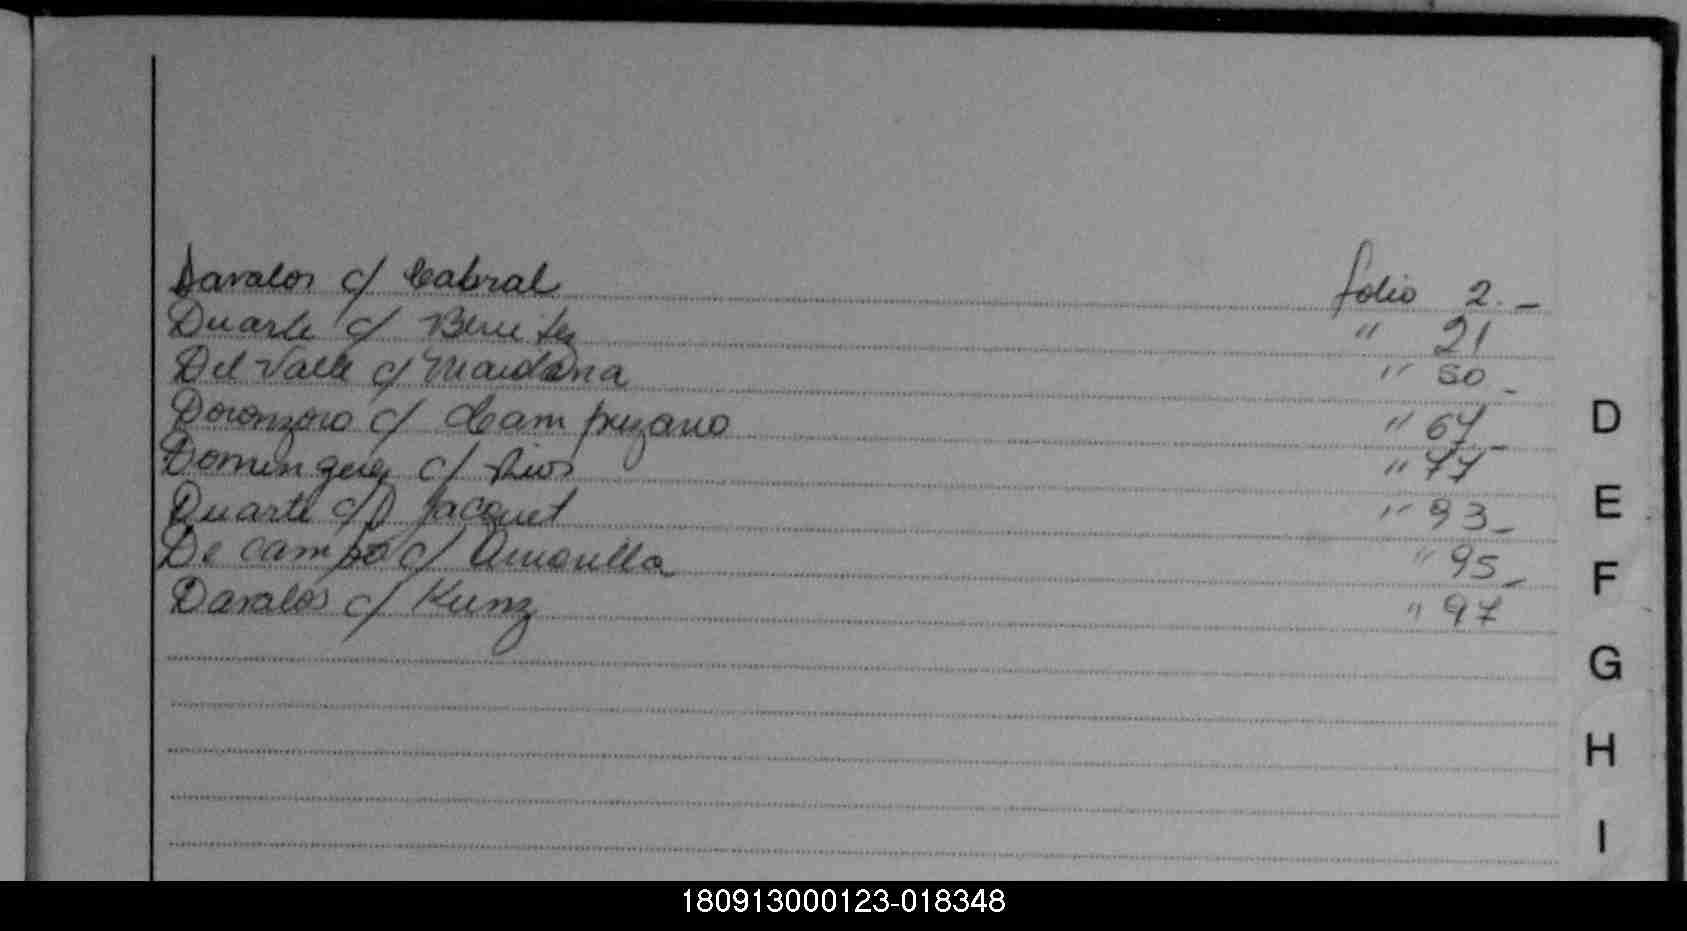 Davalos c/ Cabral folio 2.-
Duarte c/ Benitez " 21
Del Valle c/ Maidana " 50 -
Doronzoro c/ Campuzano " 67 -
Dominguez c/ Rios " 77
Duarte c/ D Jacquet " 93 -
De campo c/ Amarilla " 95 -
Davalos c/ Kunz " 97
D
E
F
G
H
I
180913000123-018348